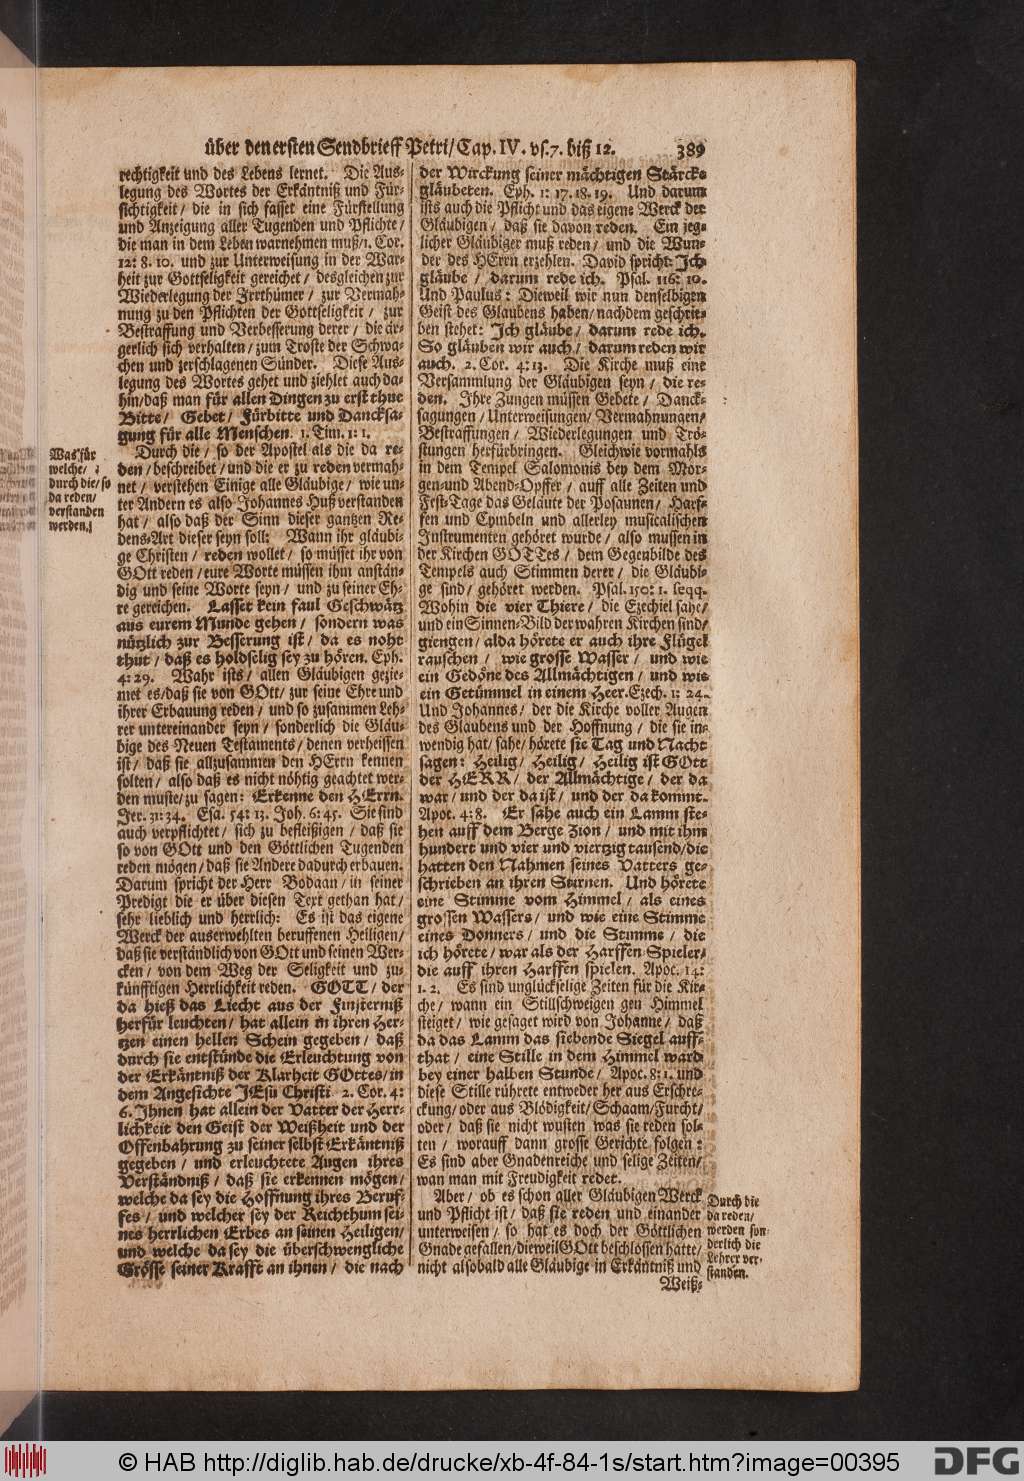 über den ersten Sendbrieff Petri/ Cap. IV. vs. 7. biß 12. 389
rechtigkeit und des Lebens lernet. Die Aus-
legung des Wortes der Erkäntniß und Für-
sichtigkeit/ die in sich fasset eine Fürstellung
und Anzeigung aller Tugenden und Pflichte/
die man in dem Leben warnehmen muß/1. Cor.
12: 8. 10. und zur Unterweisung in der War-
heit zur Gottseligkeit gereichet/ desgleichen zur
Wiederlegung der Irrthümer/ zur Vermah-
nung zu den Pflichten der Gottseligkeit/ zur
Bestraffung und Verbesserung derer/ die är-
gerlich sich verhalten/ zum Troste der Schwa-
chen und zerschlagenen Sünder. Diese Aus-
legung des Wortes gehet und ziehlet auch da-
hin/daß man für allen Dingen zu erst thue
Bitte/ Gebet/ Fürbitte und Dancksa-
gung für alle Menschen. 1. Tim. 1: 1.
Durch die/ so der Apostel als die da re-
den/beschreibet/und die er zu reden vermah-
net/ verstehen Einige alle Gläubige/ wie un-
ter Andern es also Johannes Huß verstanden
hat/ also daß der Sinn dieser gantzen Re-
dens-Art dieser seyn soll: Wann ihr gläubi-
ge Christen/ reden wollet/ so müsset ihr von
GOtt reden/eure Worte müssen ihm anstän-
dig und seine Worte seyn/ und zu seiner Eh-
re gereichen. Lasset kein faul Geschwätz
aus eurem Munde gehen/ sondern was
nützlich zur Besserung ist/ da es noht
thut/ daß es holdselig sey zu hören. Eph.
4: 29. Wahr ists/ allen Gläubigen gezie-
met es/daß sie von GOtt/ zur seine Ehre und
ihrer Erbauung reden/ und so zusammen Leh-
rer untereinander seyn/ sonderlich die Gläu-
bige des Neuen Testaments/ denen verheissen
ist/ daß sie allzusammen den HErrn kennen
solten/ also daß es nicht nöhtig geachtet wer-
den muste/zu sagen: Erkenne den HErrn.
Jer. 31: 34. Esa. 54: 13. Joh. 6: 45. Sie sind
auch verpflichtet/ sich zu befleißigen/ daß sie
so von GOtt und den Göttlichen Tugenden
reden mögen/daß sie Andere dadurch erbauen.
Darum spricht der Herr Bodaan/ in seiner
Predigt die er über diesen Text gethan hat/
sehr lieblich und herrlich: Es ist das eigene
Werck der auserwehlten beruffenen Heiligen/
daß sie verständlich von GOtt und seinen Wer-
cken/ von dem Weg der Seligkeit und zu-
künfftigen Herrlichkeit reden. GOTT/ der
da hieß das Liecht aus der Finsterniß
herfür leuchten/ hat allein in ihren Her-
tzen einen hellen Schein gegeben/ daß
durch sie entstünde die Erleuchtung von
der Erkäntniß der Klarheit GOttes/in
dem Angesichte JEsu Christi 2. Cor. 4:
6. Ihnen hat allein der Vatter der Herr-
lichkeit den Geist der Weißheit und der
Offenbahrung zu seiner selbst Erkäntniß
gegeben/ und erleuchtete Augen ihres
Verständniß/ daß sie erkennen mögen/
welche da sey die Hoffnung ihres Beruf-
fes/ und welcher sey der Reichthum sei-
nes herrlichen Erbes an seinen Heiligen/
und welche da sey die überschwengliche
Grösse seiner Krafft an ihnen/ die nach
Was für
welche/
durch die/ so
da reden/
verstanden
werden.
der Wirckung seiner mächtigen Stärcke
gläubeten. Eph. 1: 17. 18. 19. Und darum
ists auch die Pflicht und das eigene Werck der
Gläubigen/ daß sie davon reden. Ein jeg-
licher Gläubiger muß reden/ und die Wun-
der des HErrn erzehlen. David spricht: Ich
gläube/ darum rede ich. Psal. 116: 10.
Und Paulus: Dieweil wir nun denselbigen
Geist des Glaubens haben/nachdem geschrie-
ben stehet: Ich gläube/ darum rede ich.
So gläuben wir auch/ darum reden wir
auch. 2. Cor. 4: 13. Die Kirche muß eine
Versammlung der Gläubigen seyn/ die re-
den. Ihre Zungen müssen Gebete/ Danck-
sagungen/Unterweisungen/ Vermahnungen/
Bestraffungen/ Wiederlegungen und Trö-
stungen herfürbringen. Gleichwie vormahls
in dem Tempel Salomonis bey dem Mor-
gen-und Abend-Opffer/ auff alle Zeiten und
Fest-Tage das Geläute der Posaunen/ Harf-
fen und Cymbeln und allerley musicalischen
Instrumenten gehöret wurde/ also mussen in
der Kirchen GOTTes/ dem Gegenbilde des
Tempels auch Stimmen derer/ die Gläubi-
ge sind/ gehöret werden. Psal. 150: 1. seqq.
Wohin die vier Thiere/ die Ezechiel sahe/
und ein Sinnen-Bild der wahren Kirchen sind/
giengen/ alda hörete er auch ihre Flügel
rauschen/ wie grosse Wasser/ und wie
ein Gedöne des Allmächtigen/ und wie
ein Getümmel in einem Heer. Ezech. 1: 24.
Und Johannes/ der die Kirche voller Augen
des Glaubens und der Hoffnung/ die sie in-
wendig hat/ sahe/ hörete sie Tag und Nacht
sagen: Heilig/ Heilig/ Heilig ist GOtt
der HERR/ der Allmächtige/ der da
war/ und der da ist/ und der da kommt.
Apot. 4: 8. Er sahe auch ein Lamm ste-
hen auff dem Berge Zion/ und mit ihm
hundert und vier und viertzig tausend/die
hatten den Nahmen seines Vatters ge-
schrieben an ihren Stirnen. Und hörete
eine Stimme vom Himmel/ als eines
grossen Wassers/ und wie eine Stimme
eines Donners/ und die Stimme/ die
ich hörete/ war als der Harffen-Spieler/
die auff ihren Harffen spielen. Apoc. 14:
1. 2. Es sind unglückselige Zeiten für die Kir-
che/ wann ein Stillschweigen gen Himmel
steiget/ wie gesaget wird von Johanne/ daß
da das Lamm das siebende Siegel auff-
that/ eine Stille in dem Himmel ward
bey einer halben Stunde/ Apoc. 8: 1. und
diese Stille rührete entweder her aus Erschre-
ckung/ oder aus Blödigkeit/Schaam/Furcht/
oder/ daß sie nicht wusten was sie reden sol-
ten/ worauff dann grosse Gerichte folgen:
Es sind aber Gnadenreiche und selige Zeiten/
wan man mit Freudigkeit redet.
Aber/ ob es schon aller Gläubigen Werck
und Pflicht ist/ daß sie reden und einander
unterweisen/ so hat es doch der Göttlichen
Gnade gefallen/dieweil GOtt beschlossen hatte/
nicht alsobald alle Gläubige in Erkäntniß und
Weiß-
Durch die
da reden/
werden son-
derlich die
Lehrer ver-
standen.
© HAB http://diglib.hab.de/drucke/xb-4f-84-1s/start.htm?image=00395
DFG